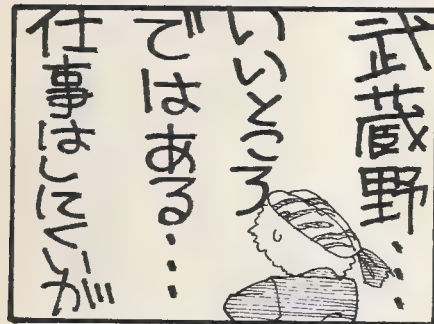 武蔵野・・・
いいところ
ではある・・・
仕事はしにくいが